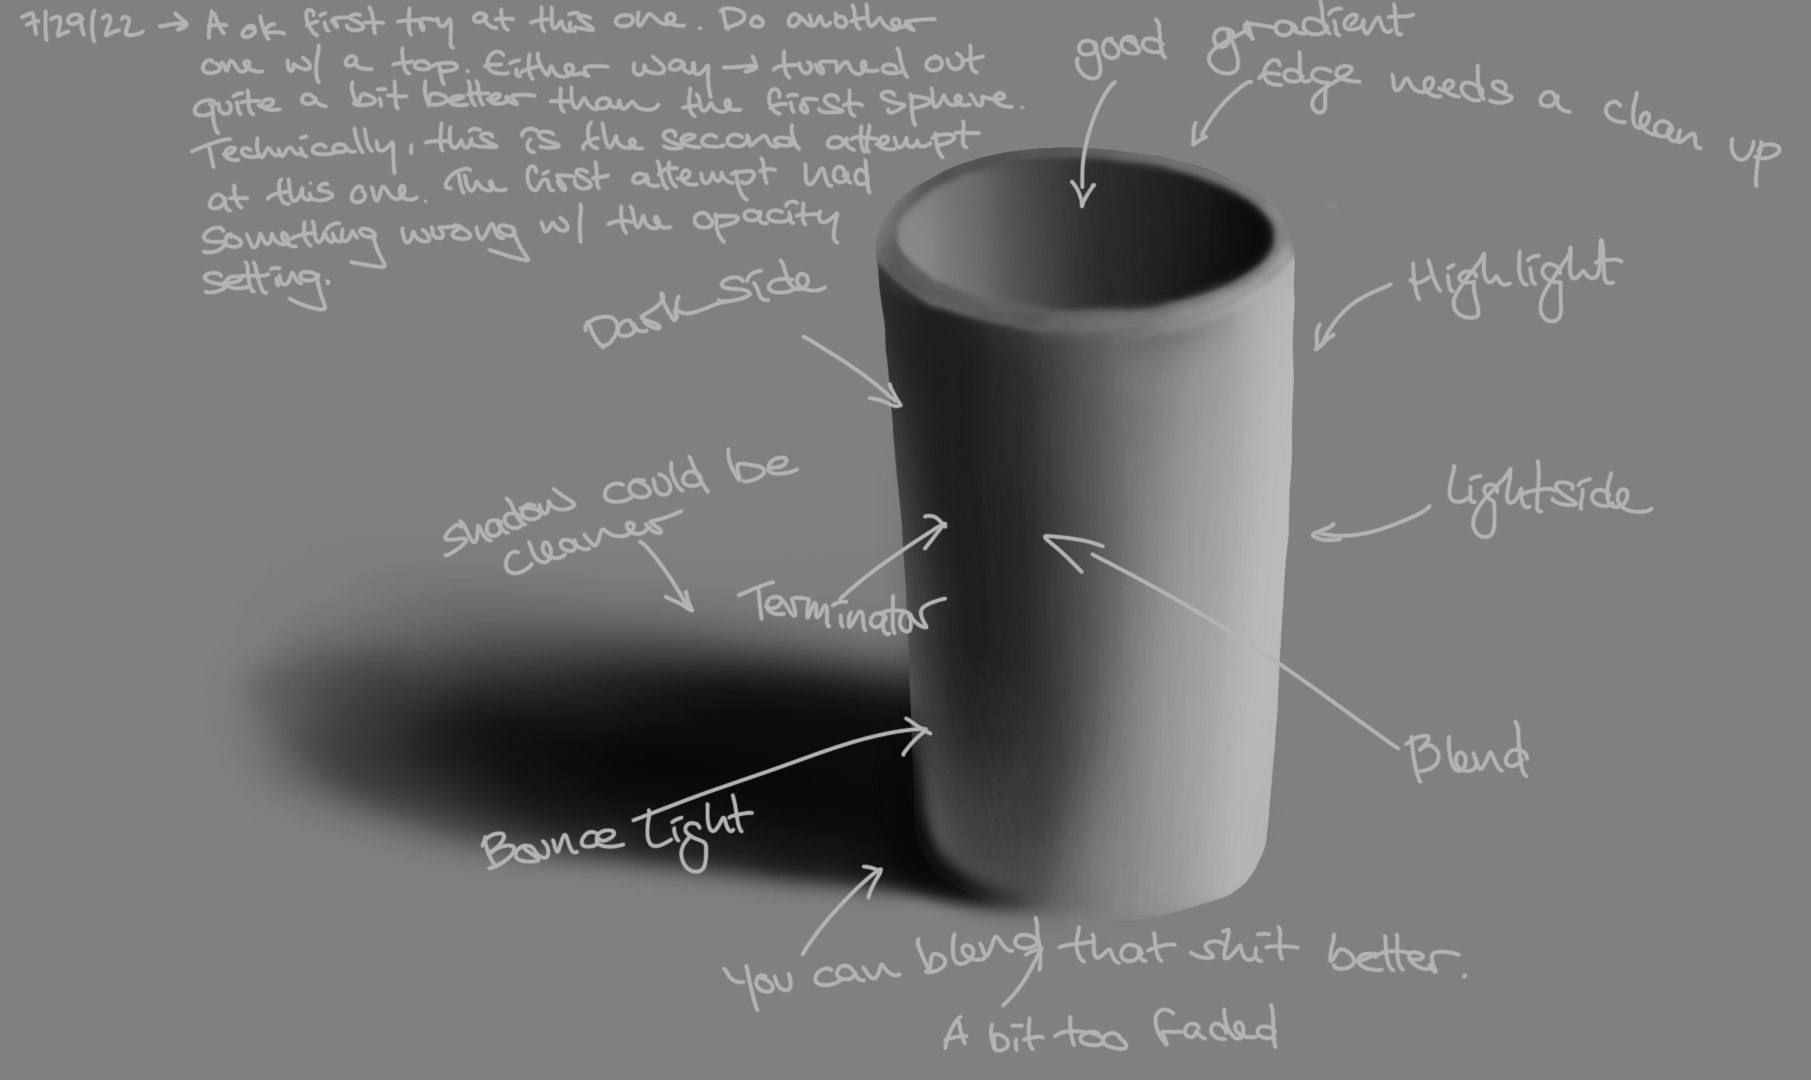 7/29/22 → A ok first try at this one. Do another
one w/ a top. Either way → turned out
quite a bit better than the first sphere.
Technically, this is the second attempt
at this one. The first attempt had
something wrong w/ the opacity
setting.
good gradient
Edge needs a clean up
Dark side
Highlight
shadow could be
cleaner
Lightside
Terminator
Blend
Bounce Light
You can blend that shit better.
A bit too faded